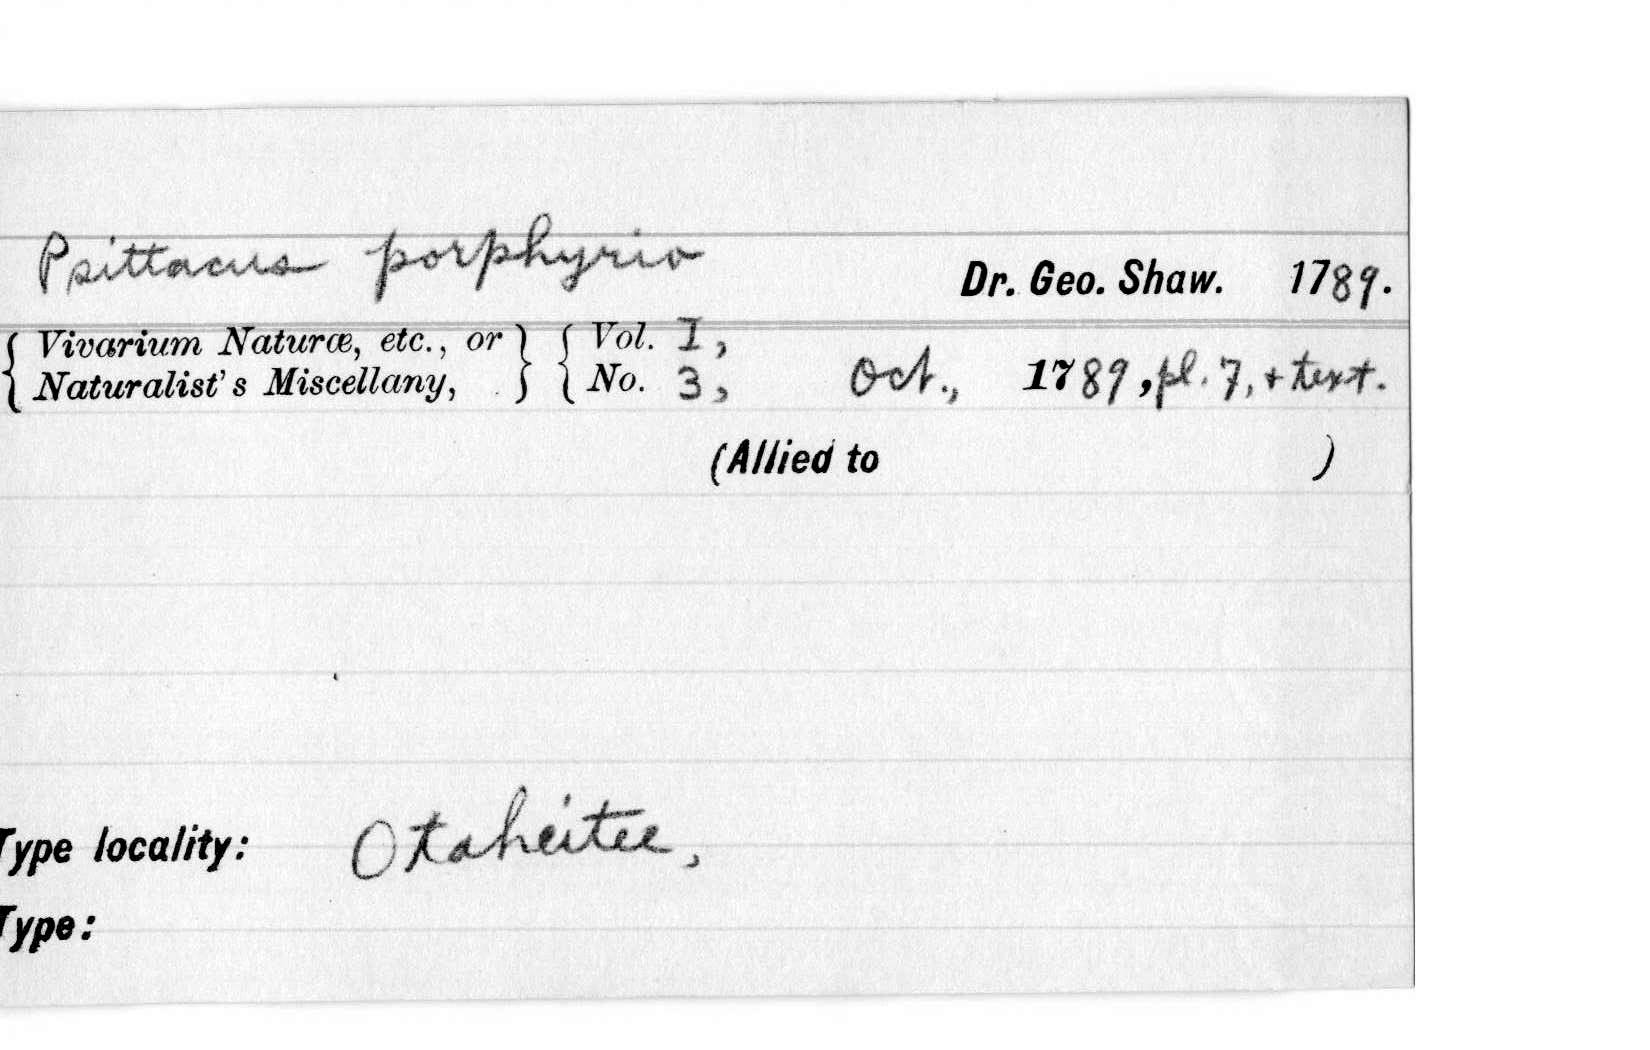 Psittacus porphyrio
Dr. Geo. Shaw. 1789.
{ Vivarium Naturæ, etc., or } { Vol. I,
{ Naturalist's Miscellany, } { No. 3, Oct., 1789, pl. 7, + text.
(Allied to )
Type locality: Otaheitee,
Type: